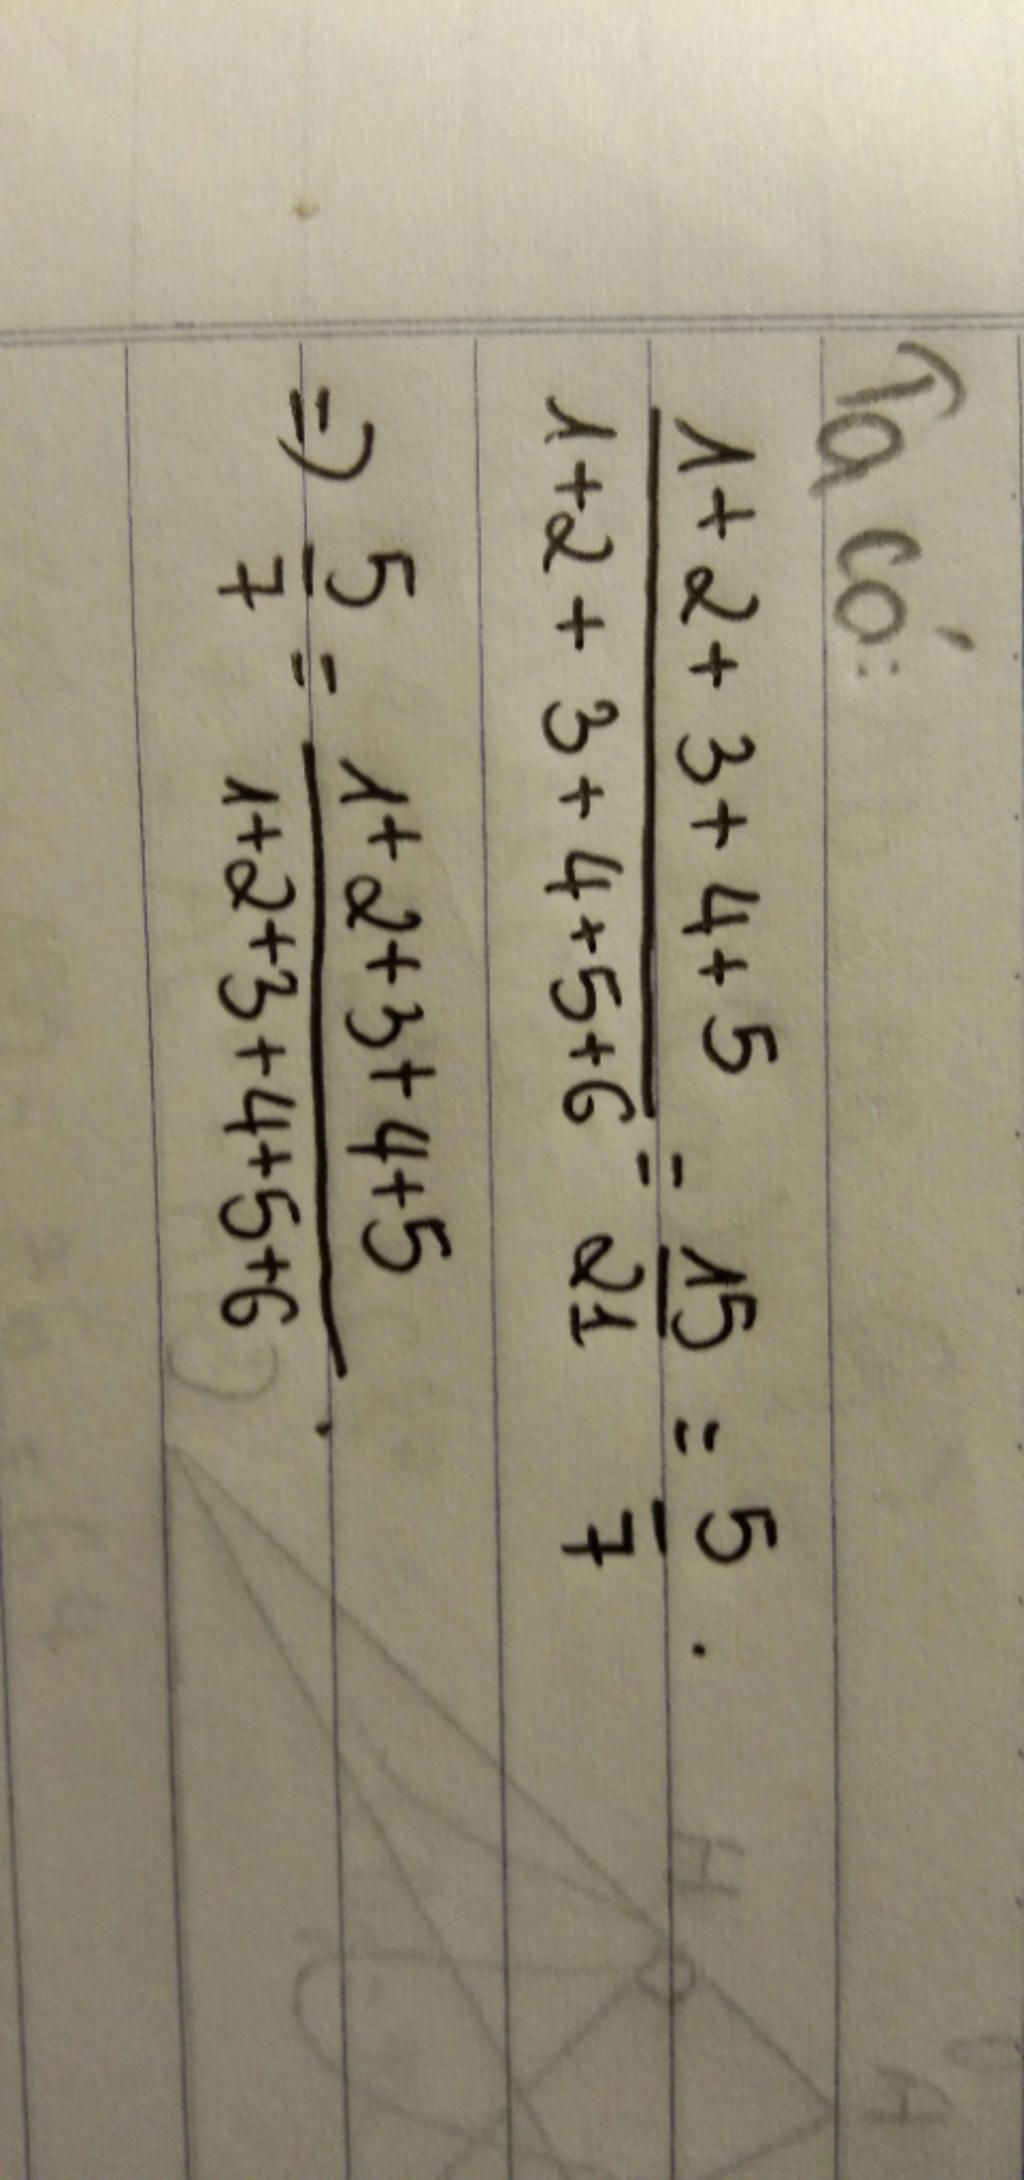 Ta có:
1+2+3+4+5 / 1+2+3+4+5+6 = 15/21 = 5/7 .
=> 5/7 = 1+2+3+4+5 / 1+2+3+4+5+6 .
H
A